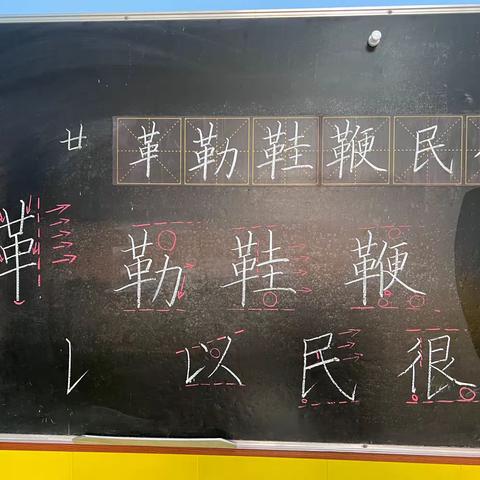 廿 革 勒 鞋 鞭 民
革 勒 鞋 鞭
以 民 很